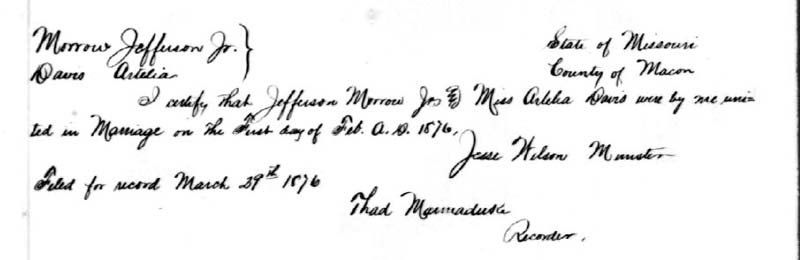 Morrow Jefferson Jr. } State of Missouri
Davis Artelia County of Macon
I certify that Jefferson Morrow Jr & Miss Artelia Davis were by me uni-
ted in Marriage on the First day of Feb. A.D. 1876.
Jesse Wilson Minister
Filed for record March 29th 1876
Thad Marmaduke
Recorder.